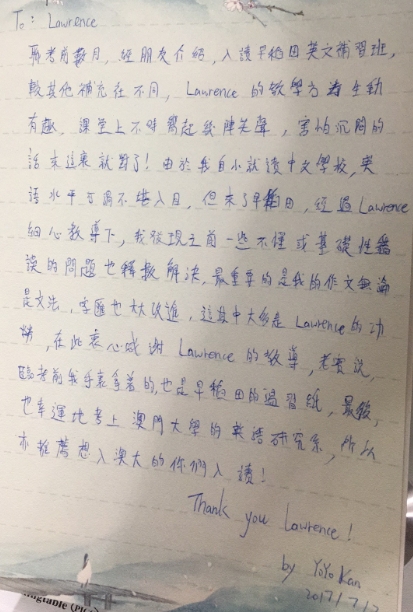 To: Lawrence
聯考前數月,經朋友介紹,入讀早稻田英文補習班,
較其他補充在不同,Lawrence 的教學方 生動
有趣,課堂上不時響起幾陣笑聲,害怕沉悶的
話來這裏就對了!由於我自小就讀中文學校,英
語水平可謂不堪入目,但來了早稻田,經過Lawrence
細心教導下,我發現之前一些不懂或基礎性錯
誤的問題也 解決,最重要的是我的作文無論
是文法,字匯也大大改進,這其中大多是Lawrence的功
勞,在此衷心感謝 Lawrence 的教導,老實說,
臨考前我手裏拿着的,也是早稻田的溫習紙,最後,
也幸運地考上 澳門大學的英語研究系,所以
亦推薦想入澳大的你們入讀!
Thank you Lawrence!
by YoYo Kan
2017/7/